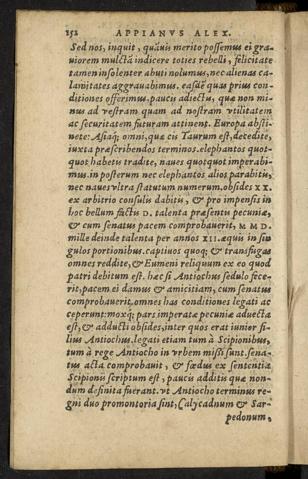 152 APPIANVS ALEX.
Sed nos, inquit, quāuis merito possemus ei gra-
uiorem mulctā indicere toties rebelli, felicitate
tamen insolenter abuti nolumus, nec alienas ca-
lamitates aggrauabimus. easdē quas prius con-
ditiones offerimus, paucis adiectis, quæ non mi-
nus ad vestram quam ad nostram vtilitatem
ac securitatem futuram attinent. Europa absti-
nete: Asiaq; omni, quæ cis Taurum est, decedite,
iuxta præscribendos terminos. elephantos quot-
quot habetis tradite, naues quotquot imperabi-
mus. in posterum nec elephantos alios parabitis,
nec naues vltra statutum numerum. obsides XX.
ex arbitrio consulis dabitis, & pro impensis in
hoc bellum factis D. talenta præsentis pecuniæ,
& cum senatus pacem comprobauerit, MMD.
mille deinde talenta per annos XII. æquis in sin
gulos portionibus. captiuos quoq; & transfugas
omnes reddite, & Eumeni reliquum ex eo quod
patri debitum est. hæc si Antiochus sedulo fece-
rit, pacem ei damus & amicitiam, cum senatus
comprobauerit. omnes has conditiones legati ac
ceperunt: moxq; pars imperatæ pecuniæ aduecta
est, & adducti obsides, inter quos erat iunior fi-
lius Antiochus. legati etiam tum à Scipionibus,
tum à rege Antiocho in vrbem missi sunt. sena-
tus acta comprobauit, & fœdus ex sententia
Scipionis scriptum est, paucis additis quæ non-
dum definita fuerant. vt Antiocho terminus re-
gni duo promontoria sint, Calycadnum & Sar-
pedonum,